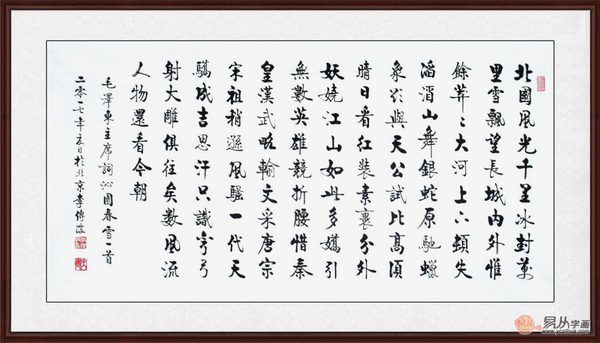 北國風光千里冰封萬
里雪飄望長城內外惟
餘莽々大河上下頓失
滔滔山舞銀蛇原馳蠟
象欲與天公試比高須
晴日看紅裝素裹分外
妖嬈江山如此多嬌引
無數英雄競折腰惜秦
皇漢武略輸文采唐宗
宋祖稍遜風騷一代天
驕成吉思汗只識彎弓
射大雕俱往矣數風流
人物還看今朝
毛澤東主席詞沁園春雪一首
二零一七年夏日於北京李傳波
易从字画
www.yczihua.com